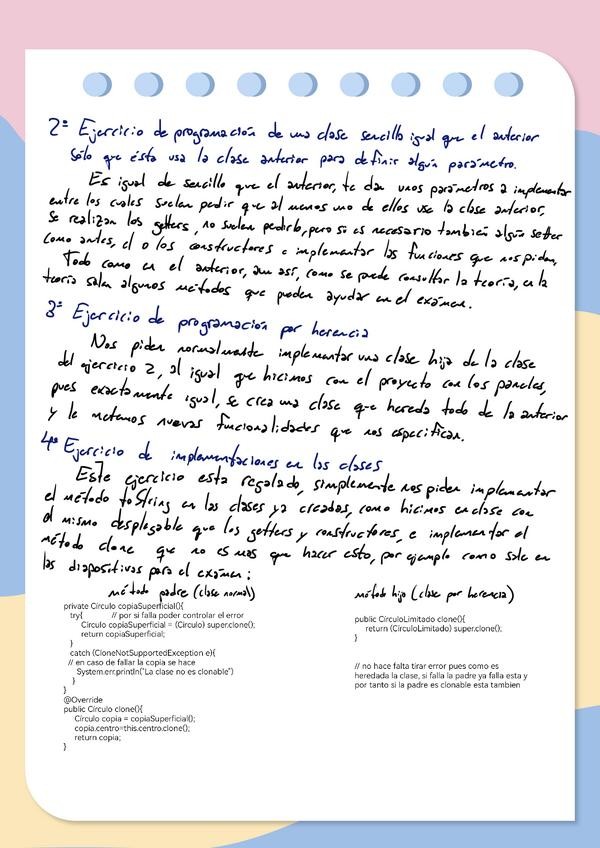 2º Ejercicio de programación de una clase sencilla igual que el anterior
sólo que ésta usa la clase anterior para definir algún parámetro.
Es igual de sencillo que el anterior, te dan unos parámetros a implementar
entre los cuales suelen pedir que al menos uno de ellos use la clase anterior,
Se realizan los getters, no suelen pedirlo, pero si es necesario también algún setter
como antes, el o los constructores e implementar las funciones que nos pidan,
Todo como en el anterior, aun así, como se puede consultar la teoría, en la
teoría salen algunos métodos que pueden ayudar en el exámen.
3º Ejercicio de programación por herencia
Nos piden normalmente implementar una clase hija de la clase
del ejercicio 2, al igual que hicimos con el proyecto con los paneles,
pues exactamente igual, se crea una clase que hereda todo de la anterior
y le metemos nuevas funcionalidades que nos especifican.
4º Ejercicio de implementaciones en las clases
Este ejercicio esta regalado, simplemente nos piden implementar
el método toString en las clases ya creadas, como hicimos en clase con
el mismo desplegable que los getters y constructores, e implementar el
método clone que no es mas que hacer esto, por ejemplo como sale en
las diapositivas para el exámen:
método padre (clase normal)
private Círculo copiaSuperficial(){
try{ // por si falla poder controlar el error
Círculo copiaSuperficial = (Círculo) super.clone();
return copiaSuperficial;
}
catch (CloneNotSupportedException e){
// en caso de fallar la copia se hace
System.err.println("La clase no es clonable")
}
}
@Override
public Círculo clone(){
Círculo copia = copiaSuperficial();
copia.centro=this.centro.clone();
return copia;
}
método hijo (clase por herencia)
public CírculoLimitado clone(){
return (CírculoLimitado) super.clone();
}
// no hace falta tirar error pues como es
heredada la clase, si falla la padre ya falla esta y
por tanto si la padre es clonable esta tambien